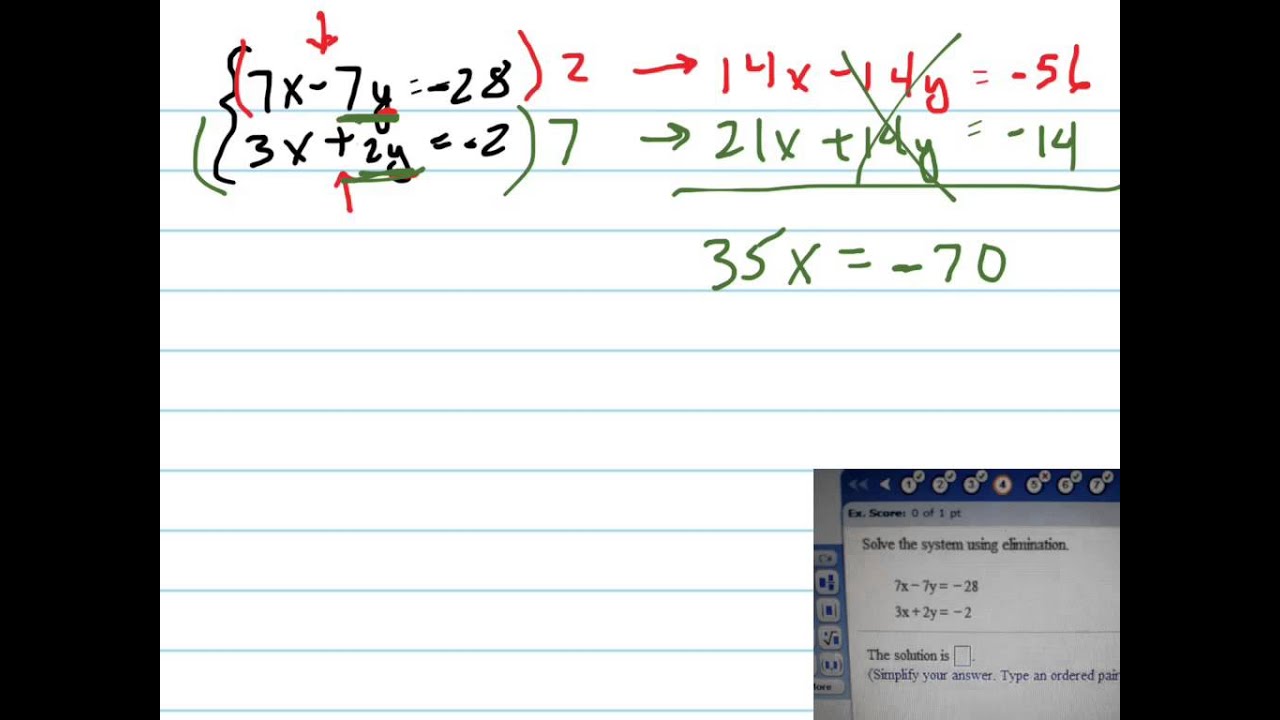 7x - 7y = -28 ) 2 → 14x - 14y = -56
( 3x + 2y = -2 ) 7 → 21x + 14y = -14
35x = -70
1 2 3 4 5 6 7
Ex. Score: 0 of 1 pt
Solve the system using elimination.
7x - 7y = - 28
3x + 2y = - 2
The solution is .
(Simplify your answer. Type an ordered pair
More